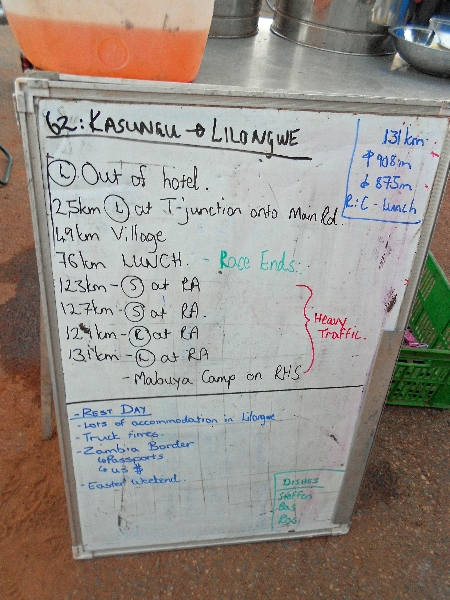 62: KASUNGU → LILONGWE
131km
↑ 908m
↓ 875m
R:C - Lunch
Ⓛ Out of hotel.
2.5km Ⓛ at T-junction onto Main Rd.
49km Village
76km LUNCH. - Race Ends.
123km - Ⓢ at RA
127km - Ⓢ at RA.
129km - Ⓡ at RA
131km - Ⓛ at RA
- Mabuya Camp on RHS
Heavy
Traffic.
- REST DAY
- Lots of accommodation in Lilongwe
- Truck times.
- Zambia Border
↳ Passports
↳ US $
- Easter Weekend.
DISHES
Steffen
Bas